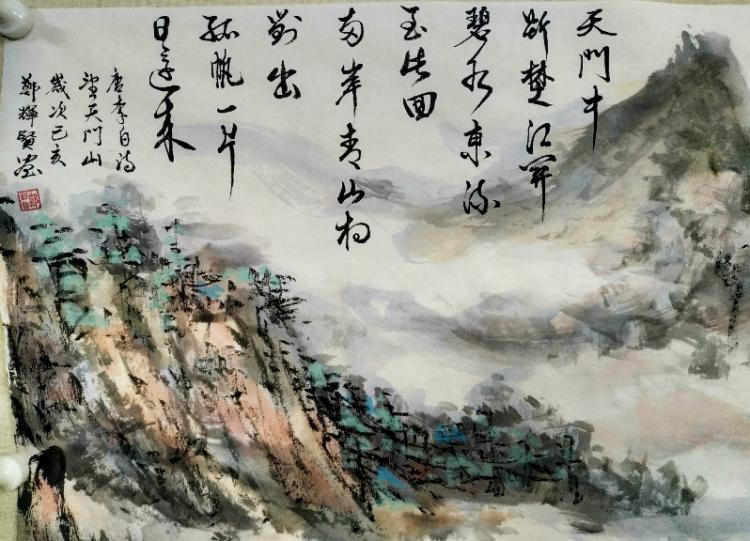 天門中
斷楚江開
碧水東流
至此回
兩岸青山相
對出
孤帆一片
日邊來
唐李白詩
望天門山
歲次己亥
鄭輝賢畫